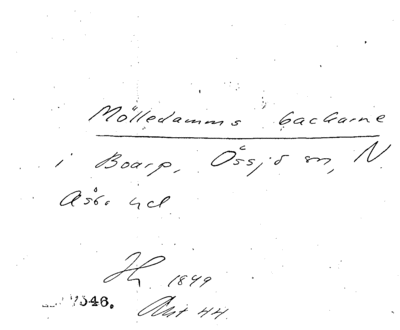 Mölledamms backarne
i Boarp, Össjö sn, N.
Åsbo hd
1849
546. Ant 44